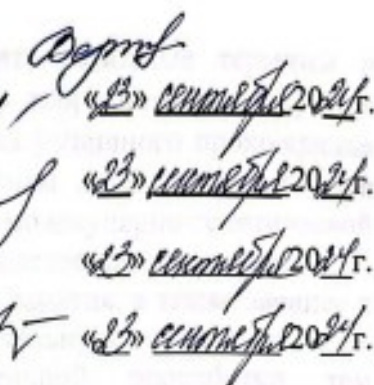 «23» сентября 2024 г.
«23» сентября 2024 г.
«23» сентября 2024 г.
«23» сентября 2024 г.